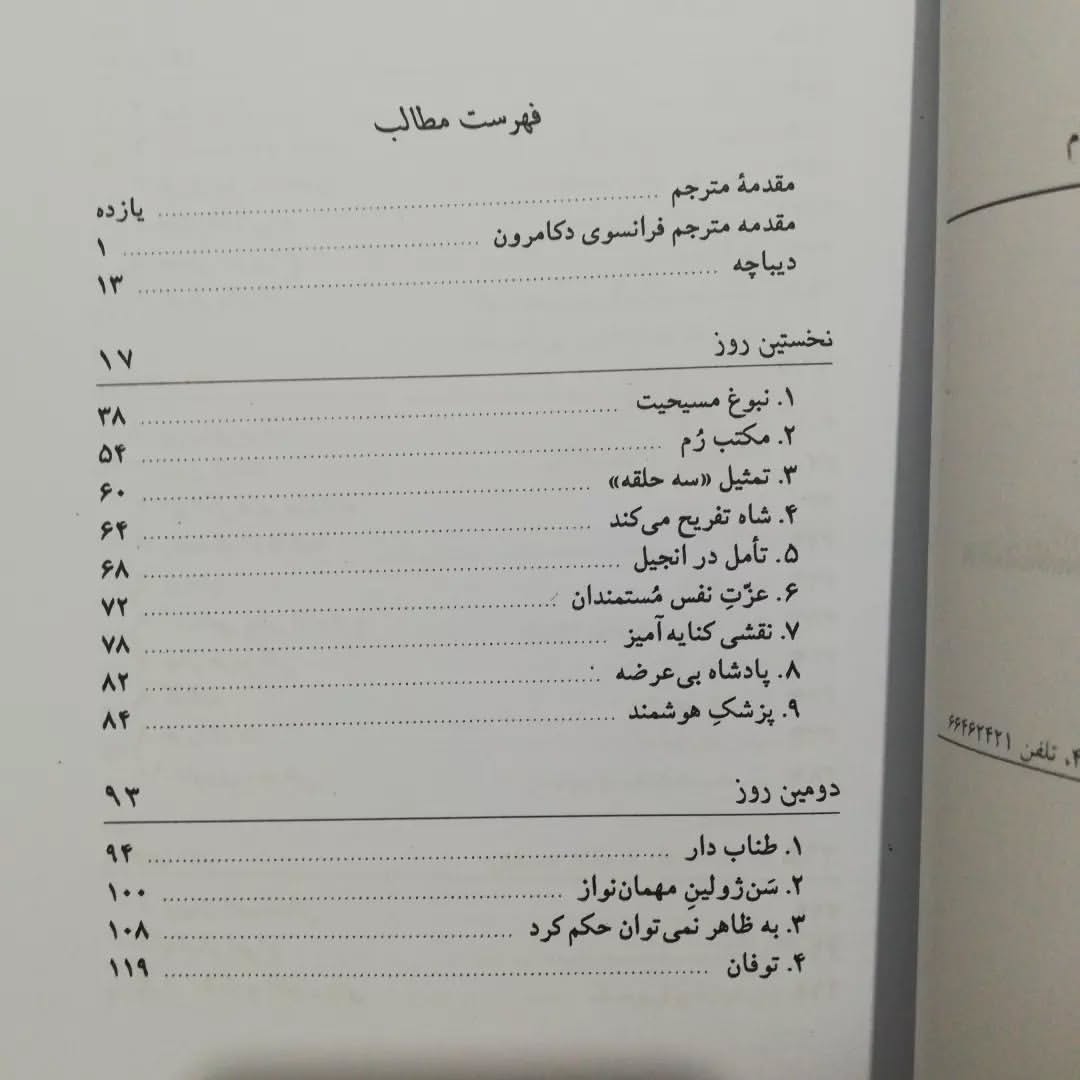 فهرست مطالب
مقدمهٔ مترجم ........ یازده
مقدمه مترجم فرانسوی دکامرون ........ ۱
دیباچه ........ ۱۳
نخستین روز ۱۷
۱. نبوغ مسیحیت ........ ۳۸
۲. مکتب رُم ........ ۵۴
۳. تمثیل «سه حلقه» ........ ۶۰
۴. شاه تفریح می‌کند ........ ۶۴
۵. تأمل در انجیل ........ ۶۸
۶. عزّتِ نفس مُستمندان ........ ۷۲
۷. نقشی کنایه‌آمیز ........ ۷۸
۸. پادشاه بی‌عرضه ........ ۸۲
۹. پزشکِ هوشمند ........ ۸۴
دومین روز ۹۳
۱. طناب دار ........ ۹۴
۲. سَن‌ژولینِ مهمان‌نواز ........ ۱۰۰
۳. به ظاهر نمی‌توان حکم کرد ........ ۱۰۸
۴. توفان ........ ۱۱۹
م
۴، تلفن ۶۶۴۶۲۴۲۱